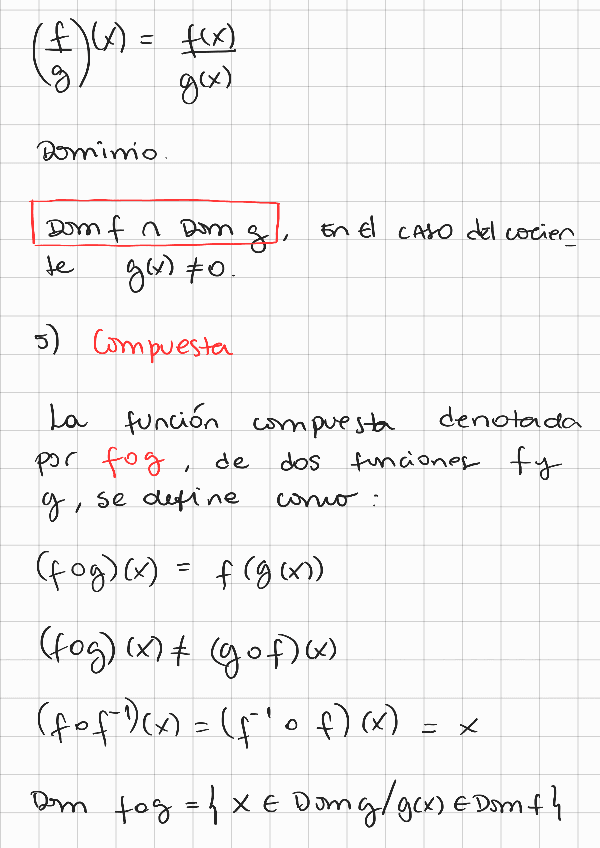 (f/g)(x) = f(x)/g(x)
Dominio.
Dom f ∩ Dom g, En El CASO del cocien
te g(x) ≠ 0.
5) Compuesta
La función compuesta denotada
por fog, de dos funciones f y
g, se define como:
(fog)(x) = f(g(x))
(fog)(x) ≠ (gof)(x)
(fof⁻¹)(x) = (f⁻¹ o f)(x) = x
Dom fog = { x ∈ Dom g/g(x) ∈ Dom f }